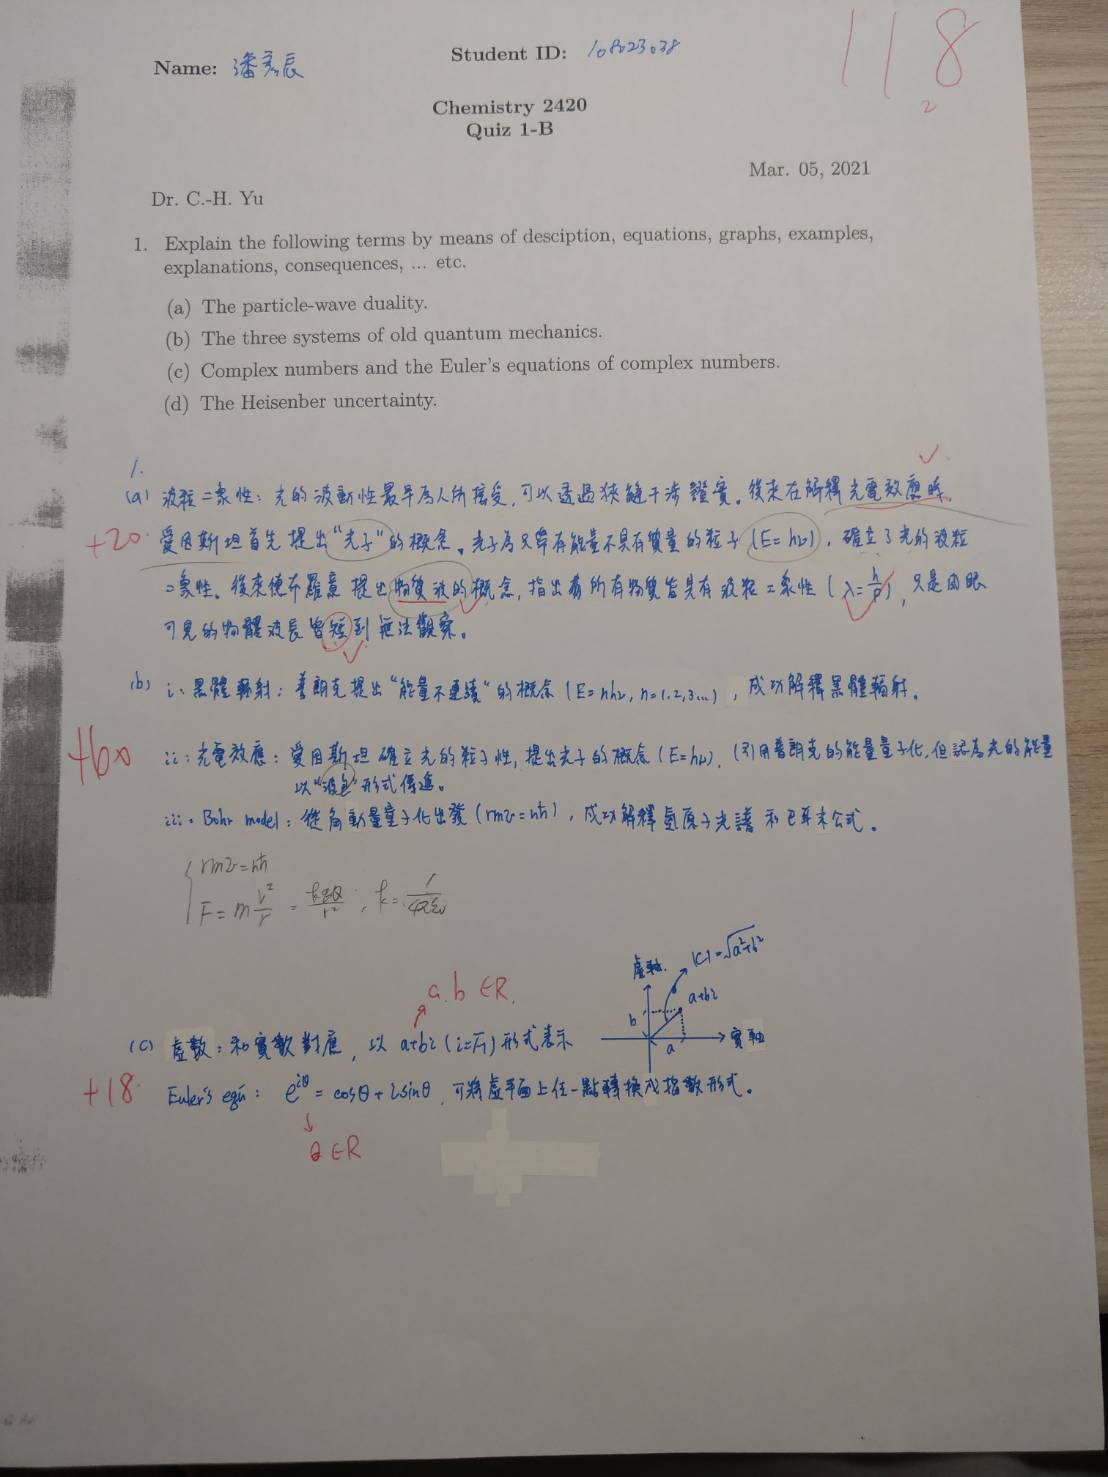 118
2
Name: 潘彥辰
Student ID: 108023038
Chemistry 2420
Quiz 1-B
Mar. 05, 2021
Dr. C.-H. Yu
1. Explain the following terms by means of desciption, equations, graphs, examples,
explanations, consequences, ... etc.
(a) The particle-wave duality.
(b) The three systems of old quantum mechanics.
(c) Complex numbers and the Euler's equations of complex numbers.
(d) The Heisenber uncertainty.
1.
(a) 波粒二象性：光的波動性最早為人所接受，可以透過狹縫干涉證實。後來在解釋光電效應時，
+20 愛因斯坦首先提出"光子"的概念。光子為只帶有能量不具有質量的粒子 (E=hν)，確立了光的波粒
二象性。後來德布羅意提出物質波的概念，指出所有物質皆具有波粒二象性 (λ=h/p)，只是肉眼
可見的物體波長皆短到無法觀察。
(b) i、黑體輻射：普朗克提出"能量不連續"的概念 (E=nhν, n=1,2,3...)，成功解釋黑體輻射。
+60 ii、光電效應：愛因斯坦確立光的粒子性，提出光子的概念 (E=hν)，(引用普朗克的能量量子化，但認為光的能量
以"波包"形式傳遞。
iii、Bohr model：從角動量量子化出發 (rmv=nħ)，成功解釋氫原子光譜和巴耳末公式。
rmv=nħ
F=m v²/r = kqQ/r², k=1/4πε₀
|C|=√a²+b²
虛軸
a+bi
b
a
實軸
a.b ∈R.
(c) 虛數：和實數對應，以 a+bi (i=√-1) 形式表示
+18 Euler's eqn: e^iθ = cosθ+isinθ，可將虛平面上任一點轉換成指數形式。
θ∈R